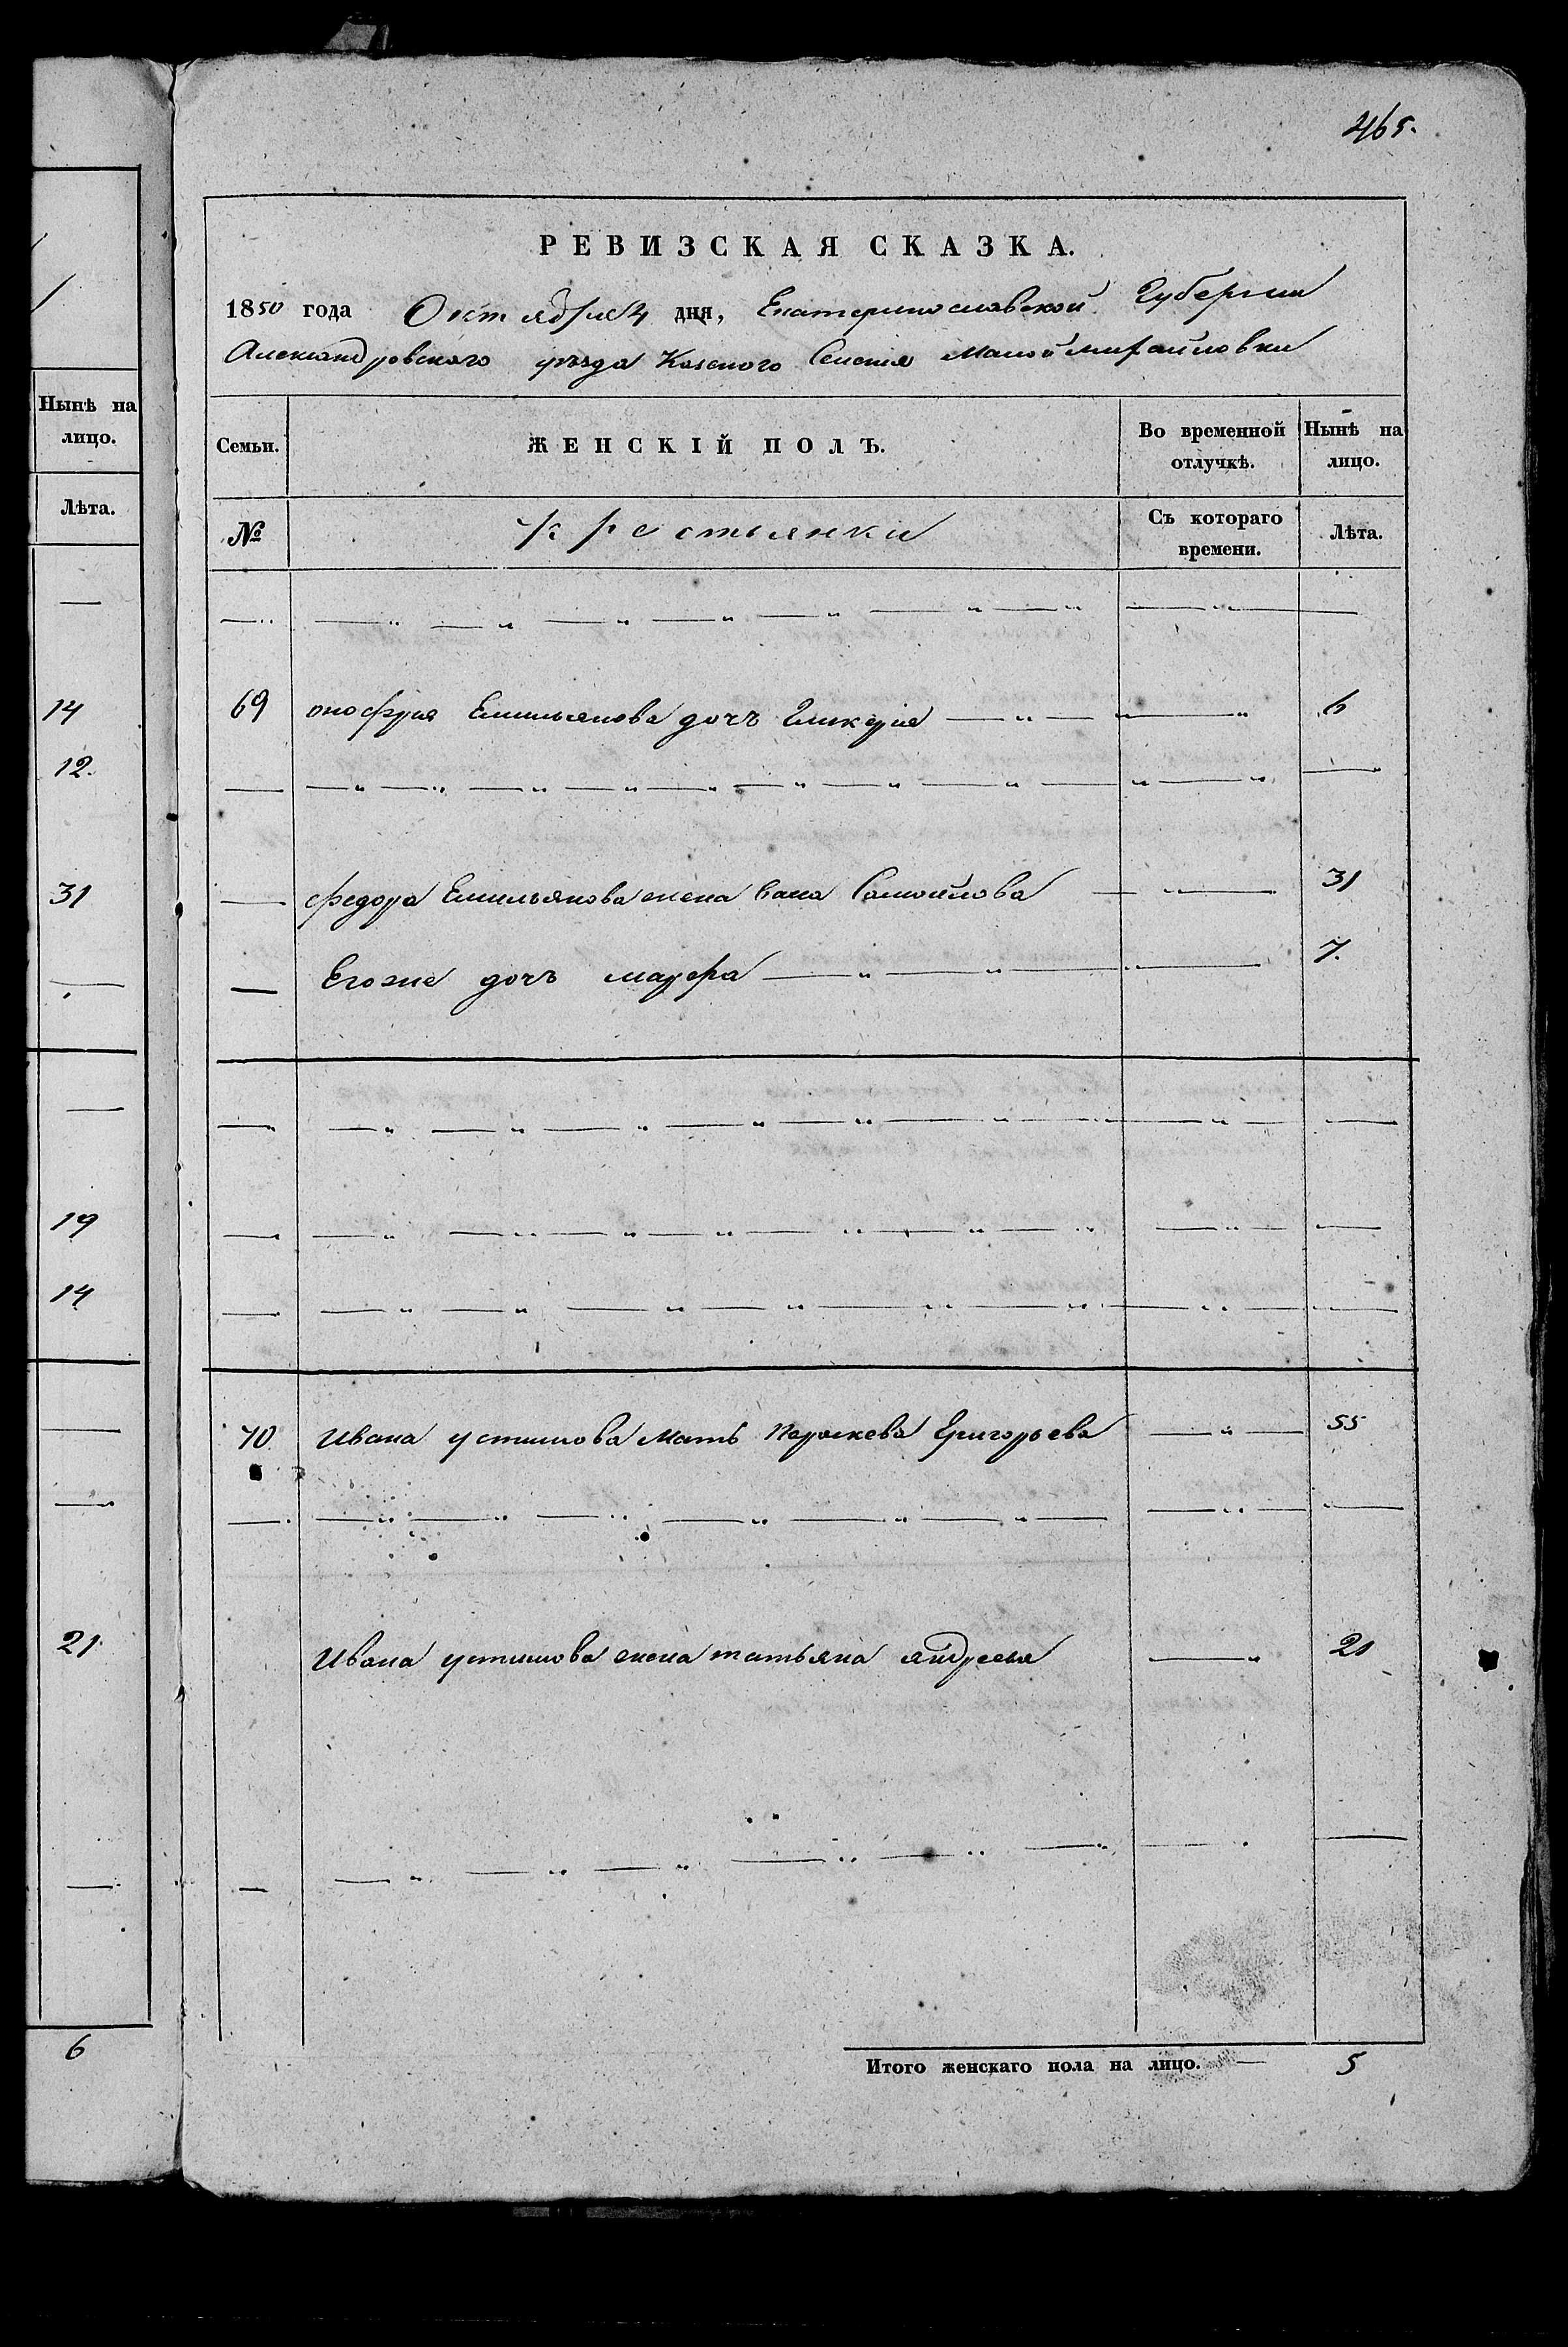 Нынѣ на
лицо.
Лѣта.
14
12.
31
19
14
21
6
465.
РЕВИЗСКАЯ СКАЗКА.
1850 года Октября 4 дня, Екатеринославской Губернии
Александровского уѣзда Казеного Селения Малоймихайловки
Семьи. ЖЕНСКІЙ ПОЛЪ. Во временной отлучкѣ. Нынѣ на лицо.
№ крестьянки Съ котораго времени. Лѣта.
69 онофрия Емильянова дочъ Гликерия 6
федора Емильянова жена Самойлова 31
Егоже дочъ мауфра 7.
70 Ивана устимова мать Параскева Григорьева 55
Ивана устимова жена татьяна андреева 21
Итого женскаго пола на лицо. 5